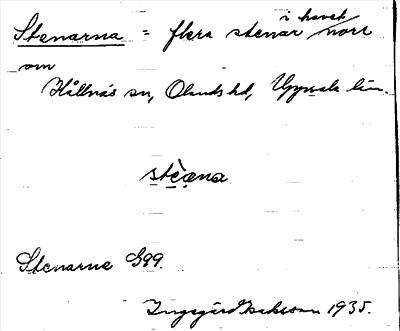 Stenarna = flera stenar i havet norr
om
Hållnäs sn, Olands hd, Uppsala län.
stèna
Stenarne G99.
Ingegärd Isaksson 1935.